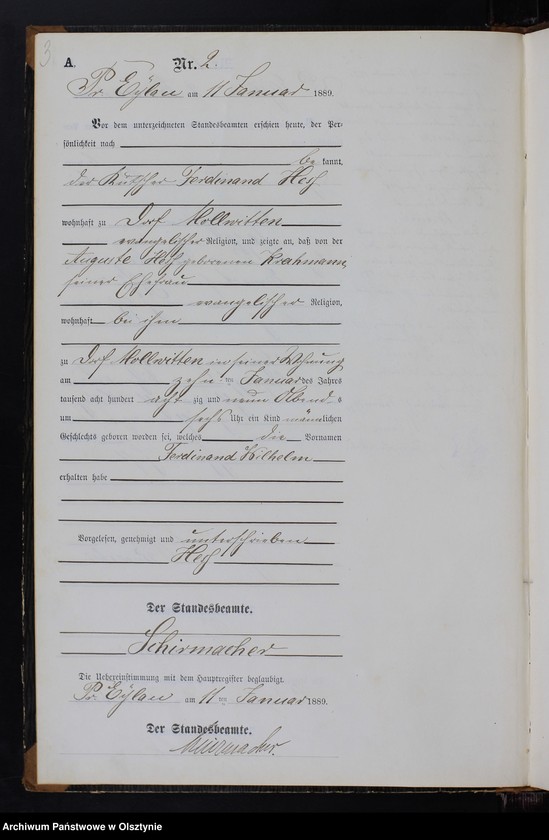 3.
A.
Nr. 2.
Pr. Eylau am 11 Januar 1889.
Vor dem unterzeichneten Standesbeamten erschien heute, der Per-
sönlichkeit nach
be kannt,
der Kutscher Ferdinand Heß
wohnhaft zu Dorf Mollwitten
evangelischer Religion, und zeigte an, daß von der
Auguste Heß geborenen Krahmann,
seiner Ehefrau
evangelischer Religion,
wohnhaft bei ihm
zu Dorf Mollwitten in seiner Wohnung
am zehn ten Januar des Jahres
tausend acht hundert acht zig und neun Abend s
um sechs Uhr ein Kind männlichen
Geschlechts geboren worden sei, welches die Vornamen
Ferdinand Wilhelm
erhalten habe
Vorgelesen, genehmigt und unterschrieben
Heß
Der Standesbeamte.
Schirmacher
Die Uebereinstimmung mit dem Hauptregister beglaubigt.
Pr. Eylau am 11 ten Januar 1889.
Der Standesbeamte.
Schirmacher.
Archiwum Państwowe w Olsztynie